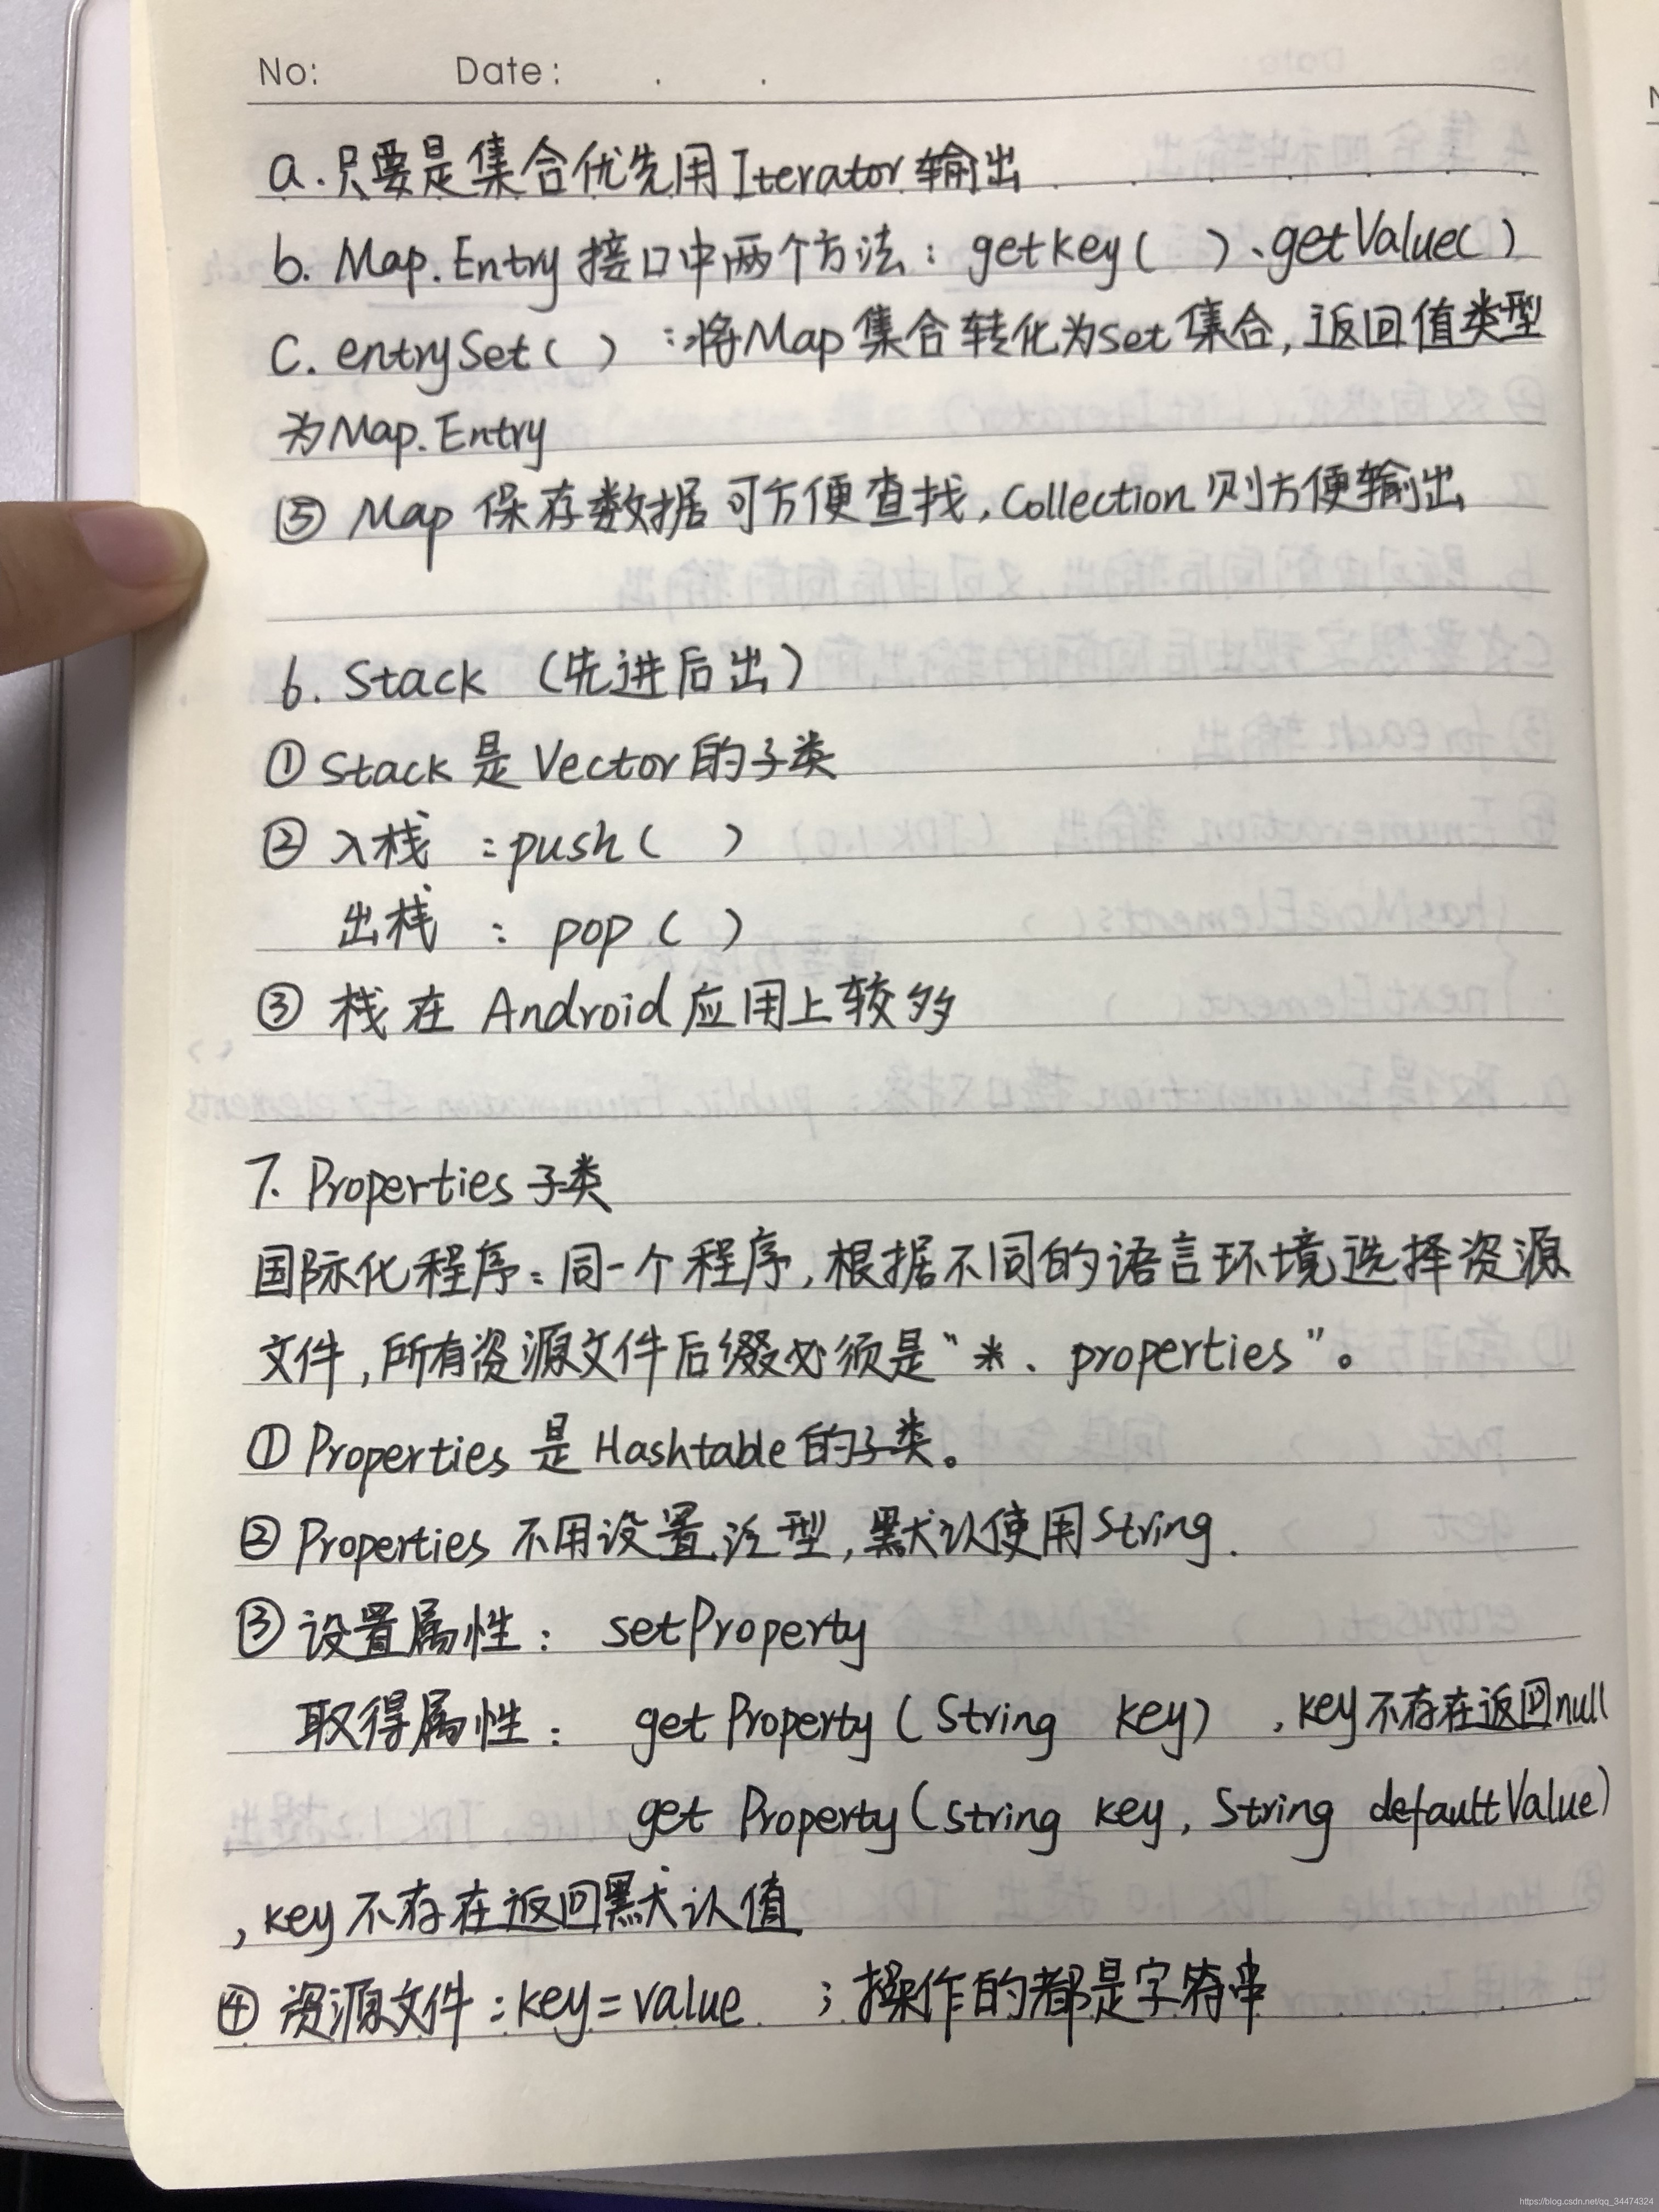 No: Date: . .
a.只要是集合优先用Iterator输出
b. Map.Entry接口中两个方法：getkey( )、getValue( )
C. entrySet( ) ：将Map集合转化为set集合，返回值类型
为Map.Entry
⑤ Map 保存数据可方便查找，Collection则方便输出
6. Stack （先进后出）
① Stack 是 Vector 的子类
② 入栈 ：push( )
出栈 ： pop( )
③ 栈在 Android 应用上较多
7. Properties 子类
国际化程序：同一个程序，根据不同的语言环境选择资源
文件，所有资源文件后缀必须是“*、properties”。
① Properties 是 Hashtable 的子类。
② Properties 不用设置泛型，默认使用String.
③ 设置属性： setProperty
取得属性： getProperty(String key) ，key不存在返回null
get Property(String key, String defaultValue)
，key不存在返回默认值
④ 资源文件：key=value ；操作的都是字符串
https://blog.csdn.net/qq_34474324